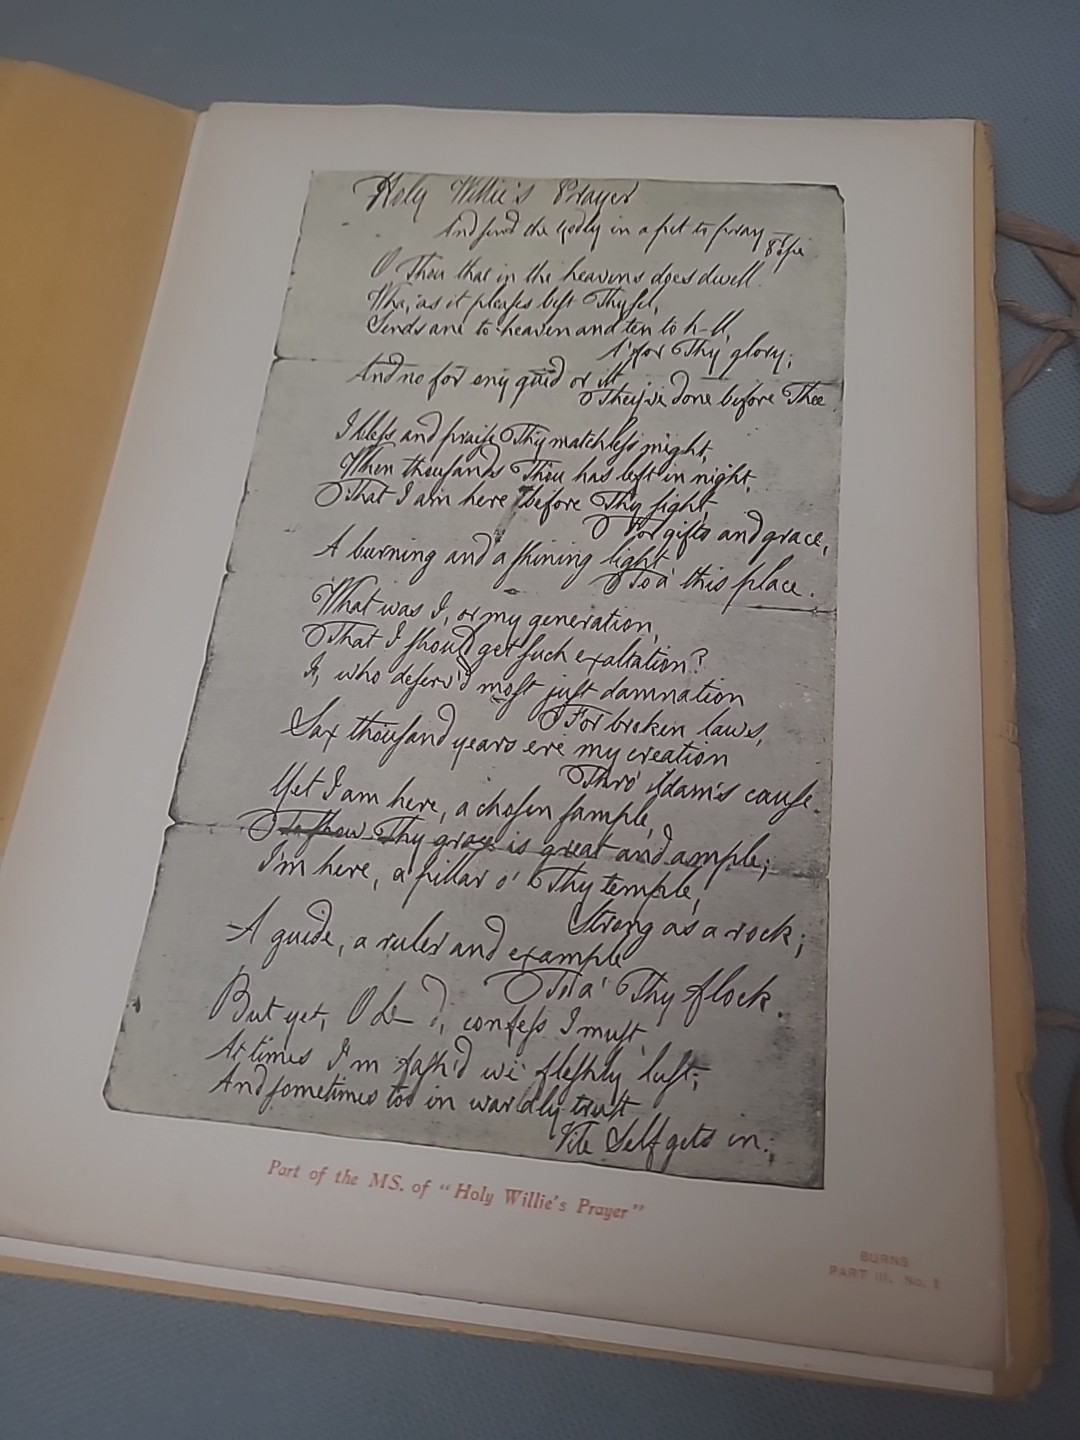 Holy Willie's Prayer
And send the Godly in a pet to pray
Pope
O Thou that in the heavens does dwell.
Wha, as it pleases best Thysel,
Sends ane to heaven and ten to h-ll,
A' for Thy glory;
And no for ony guid or ill
They've done before Thee
I bless and praise Thy matchless might,
When thousands Thou has left in night,
That I am here before Thy sight,
For gifts and grace,
A burning and a shining light
To a' this place.
What was I, or my generation,
That I should get such exaltation?
I, who deserv'd most just damnation
For broken laws,
Sax thousand years ere my creation
Thro' Adam's cause.
Yet I am here, a chosen sample,
To show Thy grace is great and ample;
I'm here, a pillar o' Thy temple,
Strong as a rock;
A guide, a ruler and example
To a' Thy flock.
But yet, O L—d, confess I must,
At times I'm fash'd wi' fleshly lust;
And sometimes too in warldly trust
Vile Self gets in;
Part of the MS. of "Holy Willie's Prayer"
BURNS
PART III. No.